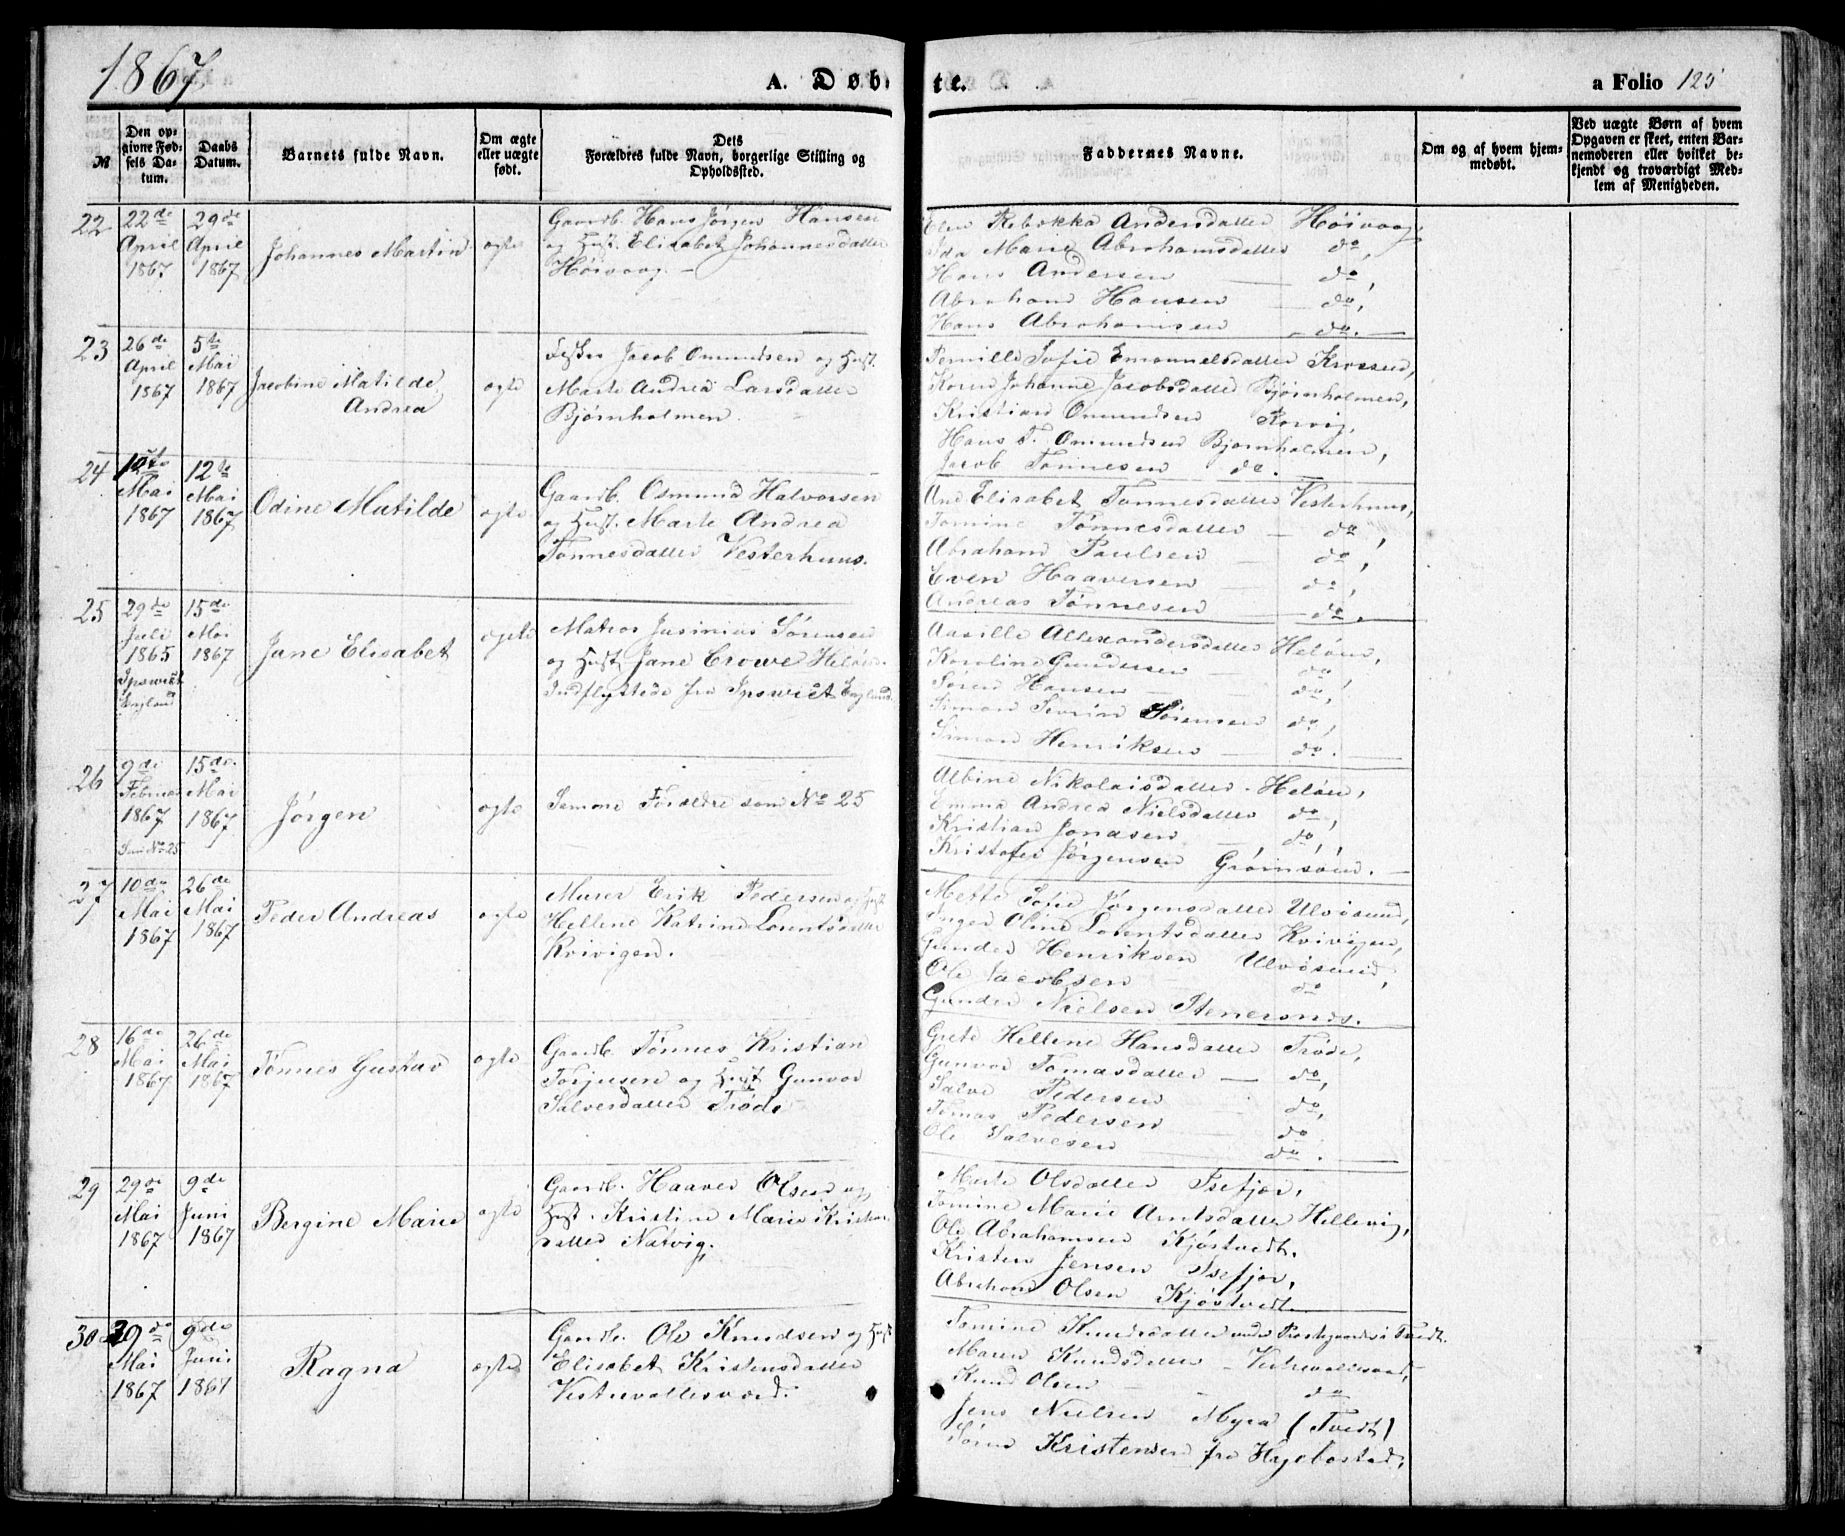 1867
A. Døbte.
a Folio 125
№
Den opgivne Fødsels Datum.
Daabs Datum.
Barnets fulde Navn.
Om ægte eller uægte født.
Dets Forældres fulde Navn, borgerlige Stilling og Opholdssted.
Faddernes Navne.
Om og af hvem hjemmedøbt.
Ved uægte Børn af hvem Opgaven er skeet, enten Barnemoderen eller hvilket bekjendt og troværdigt Medlem af Menigheden.
22
22de April 1867
29de April 1867
Johannes Martin
ægte
Gaardb. Hans Jørgen Hansen
og Hust. Elisabet Johannesdatter
Høivaag.
Elen Rebekka Andersdatter Høivaag,
Ida Marie Abrahamsdatter do,
Hans Andersen do,
Abraham Hansen do,
Hans Abrahamsen do.
23
26de April 1867
5te Mai 1867
Jacobine Matilde
Andrea
ægte
Fisker Jacob Omundsen og Hust.
Marte Andrea Larsdatter
Bjørnholmen.
Pernille Sofie Emanuelsdatter Krossen,
Karen Johanne Jacobsdatter Bjørnholmen,
Kristian Omundsen
Hans T. Omundsen Bjørnholmen,
Jacob Tønnesen do.
24
10de Mai 1867
12te Mai 1867
Odine Matilde
ægte
Gaardb. Osmund Halvorsen
og Hust. Marte Andrea
Tønnesdatter Vesterhuus.
Ane Elisabet Tønnesdatter Vesterhuus,
Tomine Tønnesdatter do,
Abraham Paulsen do,
Even Haaversen do,
Andreas Tønnesen do.
25
29de Juli 1865 Ipswict England
15de Mai 1867
Jane Elisabet
ægte
Matros Jusinius Sørensen
og Hust. Jane Crowe Heløen
Indflyttede fra Ipswict England
Aasille Allexandersdatter Heløen,
Karoline Gundersen do,
Søren Hansen do,
Simon Severin Sørensen do,
Simon Henriksen do.
26
9de Februar 1867 Som No 25
15de Mai 1867
Jørgen
ægte
Samme Forældre som No 25
Albine Nikolaisdatter Heløen,
Emma Andrea Nielsdatter do,
Kristian Jonasen do,
Kristofer Jørgensen Grømsøen.
27
10de Mai 1867
26de Mai 1867
Peder Andreas
ægte
Murer Erik Pedersen og Hust
Hellene Katrine Lorentsdatter
Kvivigen.
Mette Sofie Jørgensdatter Ulvøsund,
Inger Oline Lorentsdatter Kvivigen,
Gunder Henriksen Ulvøsund,
Ole Jacobsen do
Gunder Nielsen Stenersnds.
28
16de Mai 1867
26de Mai 1867
Tønnes Gustav
ægte
Gaardb. Tønnes Kristian
Torjusen og Hust Gunvor
Salvesdatter Trøde
Grete Hellene Hansdatter Trøde,
Gunvor Tomasdatter do,
Salve Pedersen do,
Tomas Pedersen do
Ole Salvesen do.
29
29de Mai 1867
9de Juni 1867
Bergine Marie
ægte
Gaardb. Haaver Olsen og
Hust. Kristine Marie Kristensdatter
Natvig.
Marte Olsdatter Isefjær,
Tomine Marie Arntsdatter Hellevig,
Ole Abrahamsen Kjøstvedt.
Kristen Jensen Isefjær,
Abraham Olsen Kjøstvedt.
30
29de Mai 1867
9de Juni 1867
Ragna
ægte
Gaardb. Ole Knudsen og Hust
Elisabet Kristensdatter
Vestrevallesværd.
Tomine Knudsdatter under Præstegaarden i Tvedt.
Maren Knudsdatter Vestrevallesværd,
Knud Olsen do
Jens Nielsen Myra (Tvedt)
Søren Kristensen fra Hægebostad.